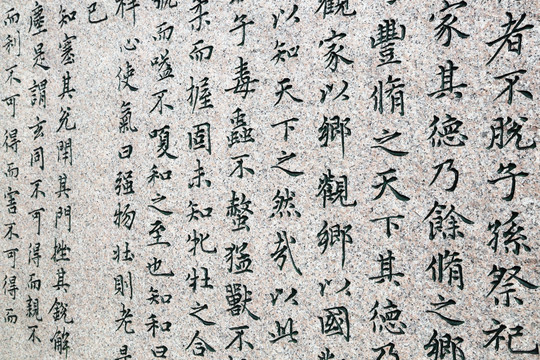 者不脫子孫祭祀
家其德乃餘脩之鄉
乃豐脩之天下其德乃
觀家以鄉觀鄉以國
以知天下之然哉以此
子毒蟲不螫猛獸不
柔而握固未知牝牡之合
號而嗌不嗄和之至也知和曰
祥心使氣曰强物壯則老是
已
知塞其兌閉其門挫其銳解
塵是謂玄同不可得而親不
而利不可得而害不可得而